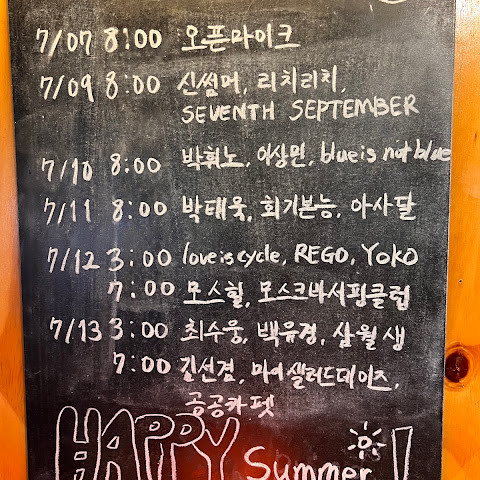 7/07 8:00 오픈마이크
7/09 8:00 신썸머, 리치리치,
SEVENTH SEPTEMBER
7/10 8:00 박휘노, 이상민, blue is not blue
7/11 8:00 박태욱, 회기본능, 아사달
7/12 3:00 love is cycle, REGO, YOKO
7:00 모스힐, 모스크바서핑클럽
7/13 3:00 최수웅, 백유경, 삼월생
7:00 김선겸, 마이샐러드데이즈,
공공카펫
HAPPY Summer!